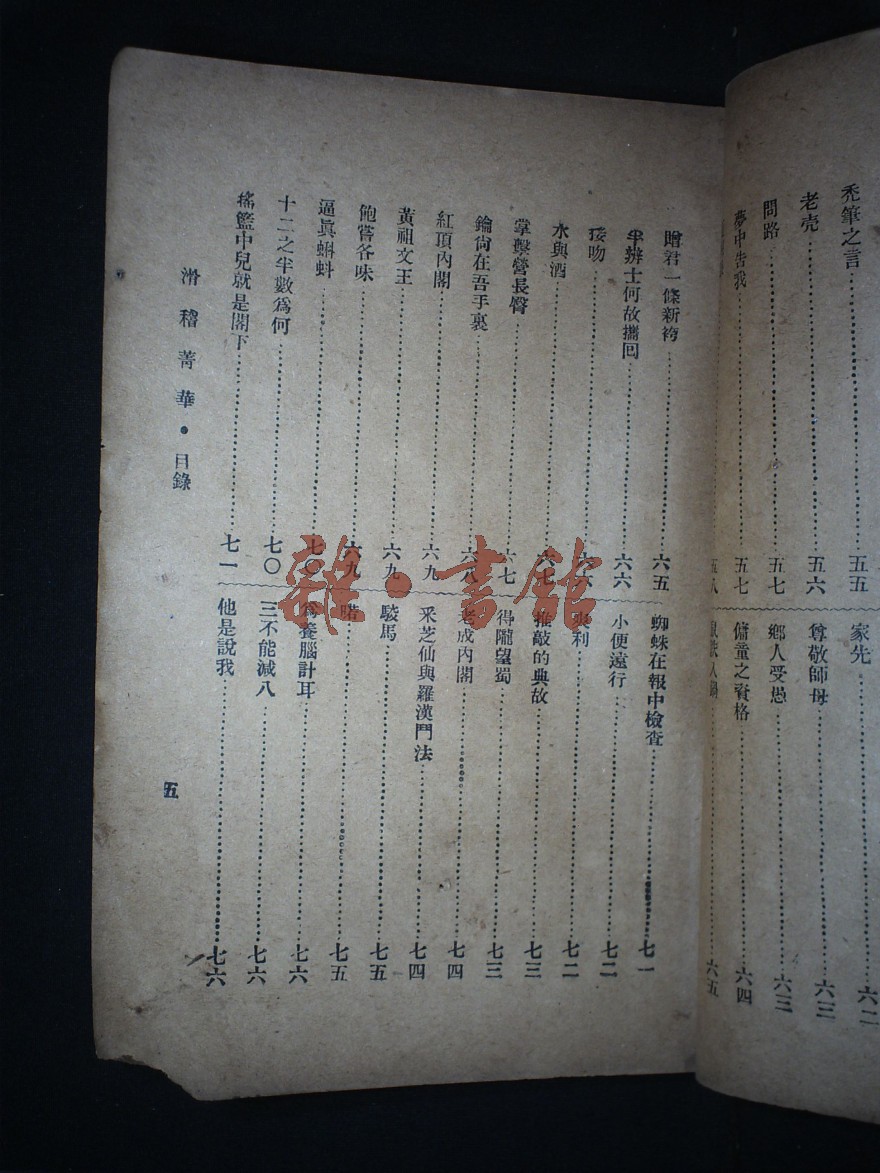 禿筆之言……五五
老壳……五六
問路……五七
夢中告我……五七
五八
家先……六二
尊敬師母……六三
鄉人受愚……六三
傭童之資格……六四
六五
贈君一條新袴……六五
半辨士何故攜回……六六
接吻……六六
水與酒……六七
掌擊營長臀……六七
鑰尙在吾手裏……六八
紅頂內閣……六九
黃祖文王……六九
飽嘗各味……六九
逼眞蝌蚪……七〇
十二之半數爲何……七〇
搖籃中兒就是閣下……七一
蜘蛛在報中檢查……七一
小便遠行……七二
爽利……七二
推敲的典故……七三
得隴望蜀……七三
老成內閣……七四
采芝仙與羅漢鬥法……七四
駿馬……七五
啱……七五
爲養腦計耳……七六
三不能減八……七六
他是說我……七六
滑稽菁華・目錄
五
雜・書館